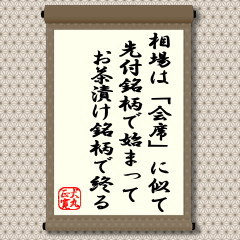 相場は「会席」に似て
先付銘柄で始まって
お茶漬け銘柄で終る